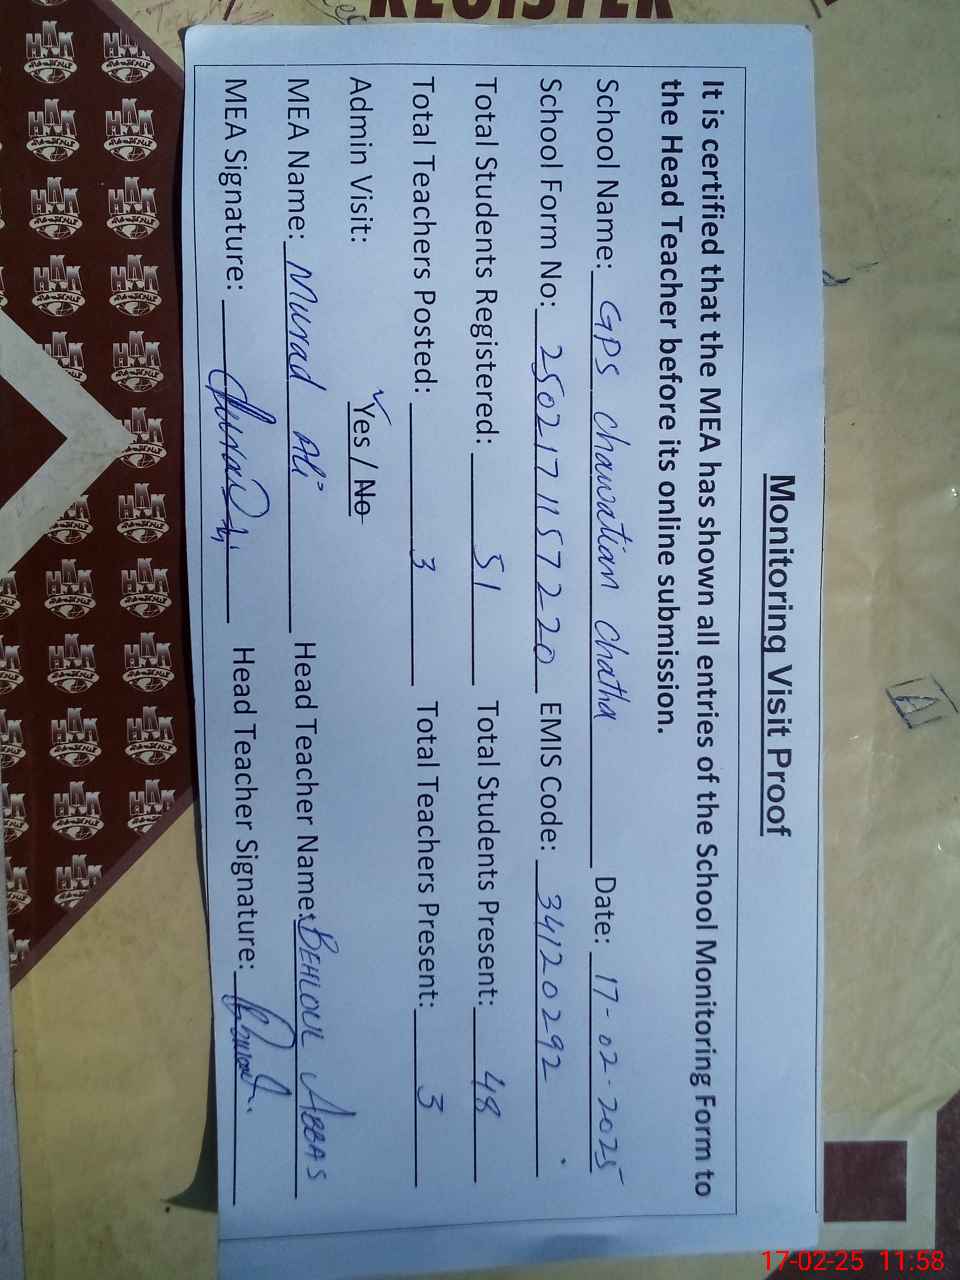 REGISTER
Monitoring Visit Proof
It is certified that the MEA has shown all entries of the School Monitoring Form to
the Head Teacher before its online submission.
School Name: GPS Chawatian Chatha Date: 17-02-2025
School Form No: 2502171157220 EMIS Code: 34120292
Total Students Registered: 51 Total Students Present: 48
Total Teachers Posted: 3 Total Teachers Present: 3
Admin Visit: Yes / No
MEA Name: Murad Ali Head Teacher Name: BEHLOUL ABBAS
MEA Signature: Head Teacher Signature:
17-02-25 11:58